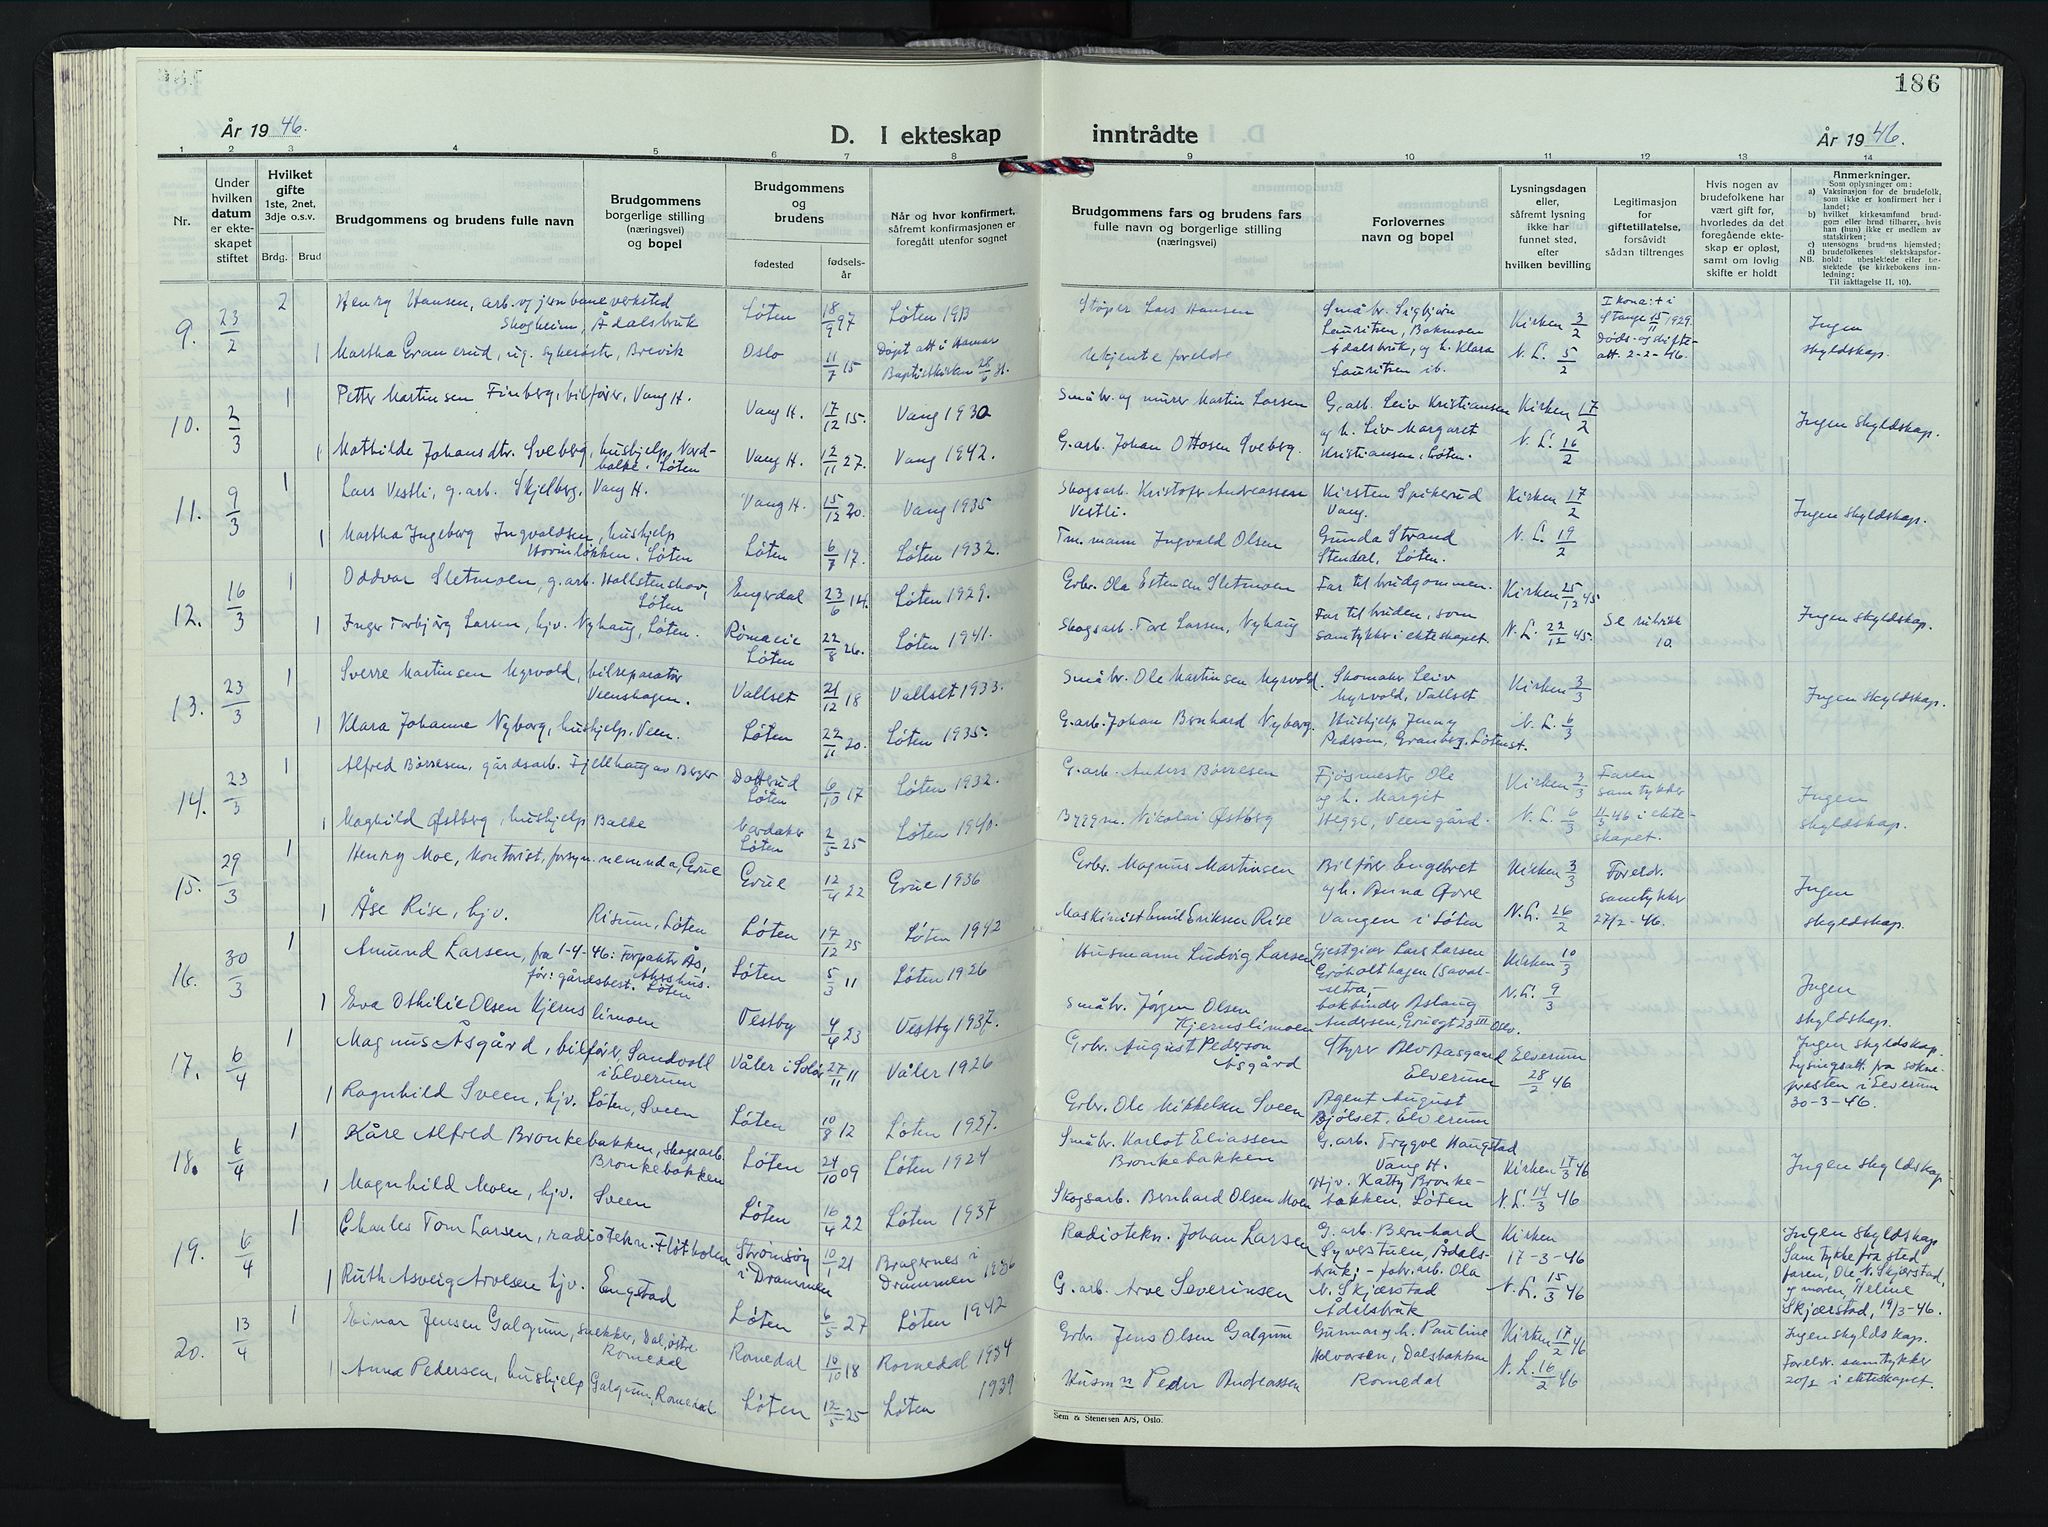 186
År 1946.
D. I ekteskap inntrådte
År 1946.
1 2 3 4 5 6 7 8 9 10 11 12 13 14
Nr.
Under hvilken datum er ekteskapet stiftet
Hvilket gifte 1ste, 2net, 3dje o.s.v.
Brdg. Brud
Brudgommens og brudens fulle navn
Brudgommens borgerlige stilling (næringsvei) og bopel
Brudgommens og brudens
fødested
fødselsår
Når og hvor konfirmert, såfremt konfirmasjonen er foregått utenfor sognet
Brudgommens fars og brudens fars fulle navn og borgerlige stilling (næringsvei)
Forlovernes navn og bopel
Lysningsdagen eller, såfremt lysning ikke har funnet sted, efter hvilken bevilling
Legitimasjon for giftetillatelse, forsåvidt sådan tiltrenges
Hvis nogen av brudefolkene har vært gift før, hvorledes da det foregående ekteskap er opløst, samt om lovlig skifte er holdt
Anmerkninger.
Som oplysninger om:
a) Vaksinasjon for de brudefolk, som ikke er konfirmert her i landet;
b) hvilket kirkesamfund brudgom eller brud tilhører, hvis han (hun) ikke er medlem av statskirken;
c) utensogns brudens hjemsted;
d) brudefolkenes slektskapsforhold: ubeslektede eller beslektede (se kirkebokens innledning:
NB. Til iakttagelse II, 10).
9. 23/2 2 Henry Hansen, arb. v/ jernbaneverksted
Skogheim, Ådalsbruk
Løten 18/9 97 Løten 1913
Støper Lars Hansen
Småbr. Sigbjørn
Lauritsen, Bakmoen
Ådalsbruk, og h. Klara
Lauritzen ib.
Kirken 3/2
N. L. 5/2
I kona: + i
Stange 15/11 1929.
Døds- og skifte-
att. 2-2-46.
Ingen
skyldskap.
1 Martha Gramerud, ug. sykesøster, Brevik
Oslo 11/7 15 Døpt att i Hamar
Baptistkirken 28/6 31.
Ukjente foreldre
10. 2/3 1 Petter Martinsen Finberg, bilfører, Vang H.
Vang H. 17/12 15. Vang 1930
Småbr. og murer Martin Larsen
G.arb. Leiv Kristiansen
og h. Liv Margaret
Kristiansen, Løten.
Kirken 17/2
N. L. 16/2
Ingen skyldskap.
1 Mathilde Johansdtr. Sveberg, hushjelp, Nord-
balke, Løten
Vang H. 12/11 27. Vang 1942.
G.arb. Johan Ottosen Sveberg.
11. 9/3 1 Lars Vestli, g.arb. Skjelberg, Vang H.
Vang H. 15/12 20. Vang 1935.
Skogsarb. Kristofer Andreassen
Vestli.
Kirsten Spikerud
Vang.
Gunda Strand
Stendal, Løten.
Kirken 17/2
N. L. 19/2
Ingen skyldskap.
1 Martha Ingeborg Ingvaldsen, hushjelp
Hornløkken, Løten
Løten 6/7 17. Løten 1932.
Tm.mann Ingvald Olsen
12. 16/3 1 Oddvar Sletmoen, g.arb. Hallstenshov,
Løten
Engerdal 23/6 14. Løten 1929.
Grbr. Ola Estensen Sletmoen
Far til brudgommen.
Far til bruden, som
samtykker i ekteskapet.
Kirken 25/12 45.
N. L. 22/12 45.
Se rubrikk
10.
Ingen skyldskap.
1 Inger Torbjørg Larsen, hjv. Nyhaug, Løten.
Løten 22/8 26. Løten 1941.
Skogsarb. Tore Larsen, Nyhaug
13. 23/3 1 Sverre Martinsen Myrvold, bilreparatør
Veenshagen.
Vallset 21/12 18 Vallset 1933.
Småbr. Ole Martinsen Myrvold.
Skomaker Leiv
Myrvold, Vallset
Hushjelp Jenny
Pedersen, Granberg, Løtenst.
Kirken 3/3
N. L. 6/3
Ingen skyldskap.
1 Klara Johanne Nyborg, hushjelp, Veen.
Løten 22/11 20. Løten 1935.
G.arb. Johan Bernhard Nyborg.
14. 23/3 1 Alfred Børresen, gårdsarb. Fjellhaug av Berger
Løten 6/10 17 Løten 1932.
G.arb. Anders Børresen
Fjøsmester Ole
og h. Margit
Hegge, Veen gård.
Kirken 3/3
N. L. 6/3
Faren
samtykker
4/3 46 i ekte-
skapet.
Ingen
skyldskap.
1 Magnhild Østberg, hushjelp Balke
Løten 2/5 25 Løten 1940.
Byggm. Nikolai Østberg
15. 29/3 1 Henry Moe, kontorist, forsyn.nemnda, Grue
Grue 12/4 22 Grue 1936
Grbr. Magnus Martinsen
Bilfører Engebret
og h. Anna Øvre
Vangen i Løten
Kirken 3/3
N. L. 26/2
Foreldr.
samtykker
27/2-46.
Ingen
skyldskap.
1 Åse Rise, hjv. Risum, Løten
Løten 17/12 25 Løten 1942
Maskinist Emil Eriksen Rise
16. 30/3 1 Amund Larsen, fra 1-4-46: Forpakter Ås,
Akershus.
før: gårdsbest. Løten
Løten 5/3 11 Løten 1926
Husmann Ludvig Larsen
Gjestgiver Lars Larsen
Grøholthagen (Saval-
setra,-
bokbinder Aslaug
Andersen, Oslo.
Kirken 10/3
N. L. 9/3
Ingen
skyldskap.
1 Eva Othilie Olsen Kjernslimoen
Vestby 4/4 23 Vestby 1937.
Småbr. Jørgen Olsen
Kjernslimoen
17. 6/4 1 Magnus Åsgård, bilfører, Sandvoll
i Elverum
Våler i Solør 27/11 11 Våler 1926
Grbr. August Pederson
Åsgård
Styrer Alv Aasgaard
Elverum
Agent August
Bjølset, Elverum
Elverum
28/2 46
Ingen skyldskap.
Lysingsatt. fra sokne-
presten i Elverum
30-3-46.
1 Ragnhild Sveen, hjv. Løten, Sveen
Løten 10/8 12 Løten 1927.
Grbr. Ole Mikkelsen Sveen
18. 6/4 1 Kåre Alfred Bronkebakken, skogsarb.
Bronkebakken
Løten 24/10 09 Løten 1924
Småbr. Karlot Eliassen
Bronkebakken
G.arb. Trygve Haugstad
Vang H.
Hjv. Katty Bronke-
bakken, Løten
Kirken 17/3 46
N. L. 14/3 46
Ingen skyldskap
1 Magnhild Moen, hjv. Sveen
Løten 16/4 22 Løten 1937
Skogsarb. Bernhard Olsen Moen
19. 6/4 1 Charles Tom Larsen, radiotekn. Fløtholen
Strømsøy
i Drammen 10/1 21 Bragernes i
Drammen 1936
Radiotekn. Johan Larsen
G.arb. Bernhard
Syvestuen, Ådals-
bruk; - fabr.arb. Ola
N. Skjærstad
Ådalsbruk
Kirken
17-3-46
N. L. 15/3 46
Ingen skyldskap
Samtykke fra sted
faren, Ole N. Skjærstad,
og moren, Heline
Skjærstad, 19/3-46.
1 Ruth Asveig Arvesen hjv. Engstad
G.arb. Arve Severinsen
20. 13/4 1 Einar Jensen Galgum, snekker, Dal, østre
Romedal
Løten 6/5 27 Løten 1942
Romedal 10/10 18 Romedal 1934
Grbr. Jens Olsen Galgum
Gunnar og h. Pauline
Halvorsen, Dalsbakken
Romedal
Kirken 17/2 46
N. L. 16/2 46
Ingen skyldskap.
Foreldr. samtykker
20/2 i ekteskapet.
1 Anna Pedersen, hushjelp Galgum, Romedal
Løten 12/5 25 Løten 1939
Husmn Peder Andreassen
Sem & Stenersen A/S, Oslo.